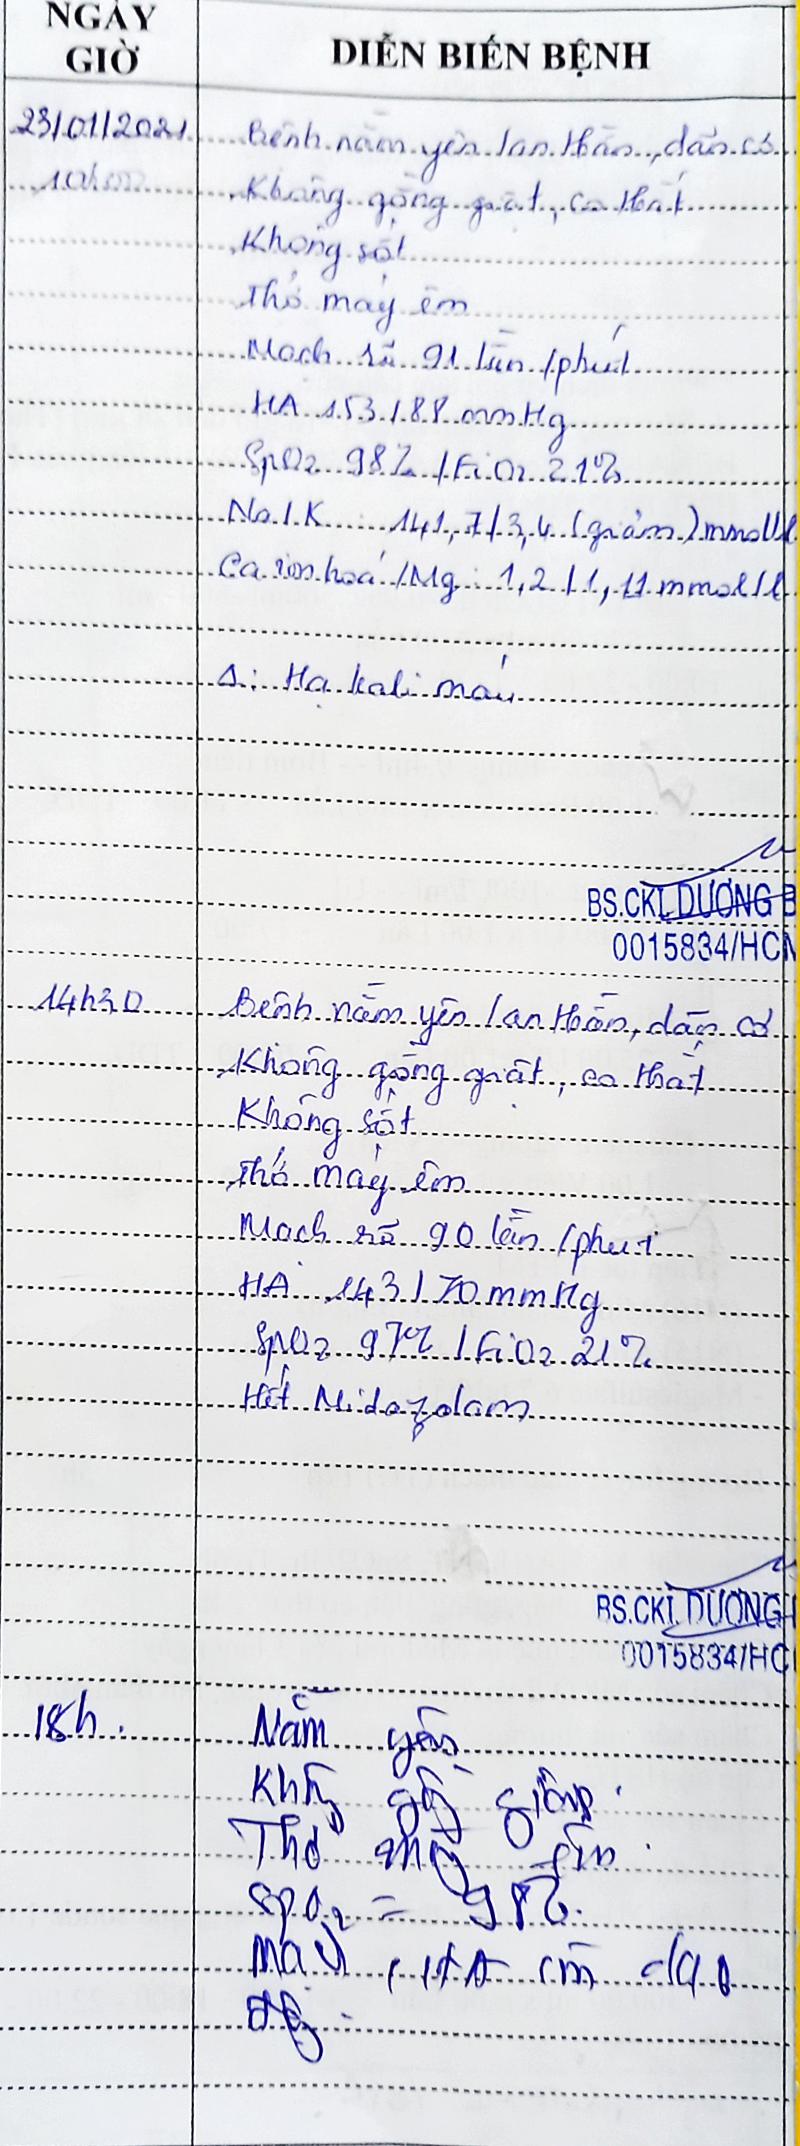 NGÀY
GIỜ
DIỄN BIẾN BỆNH
23/01/2021 Bệnh nằm yên /an thần, dãn cơ
10h00 Không gồng giật, co thắt
Không sốt
Thở máy êm
Mạch rõ 91 lần /phút
HA 153/88 mmHg
SpO2 98% / FiO2 21%
Na/K : 141,7/3,4 (giảm) mmol/l
Ca ion hoá /Mg : 1,2/1,11 mmol/l
Δ: Hạ kali máu
BS.CKI. DƯƠNG
0015834/HCM
14h30 Bệnh nằm yên /an thần, dãn cơ
Không gồng giật, co thắt
Không sốt
Thở máy êm
Mạch rõ 90 lần /phút
HA 143/70 mmHg
SpO2 97% / FiO2 21%
Hết Midazolam
BS.CKI. DƯƠNG
0015834/HC
18h. Nằm yên
Không gồng
Thở máy êm.
SpO2 = 98%.
Mạch, HA còn dao
động.